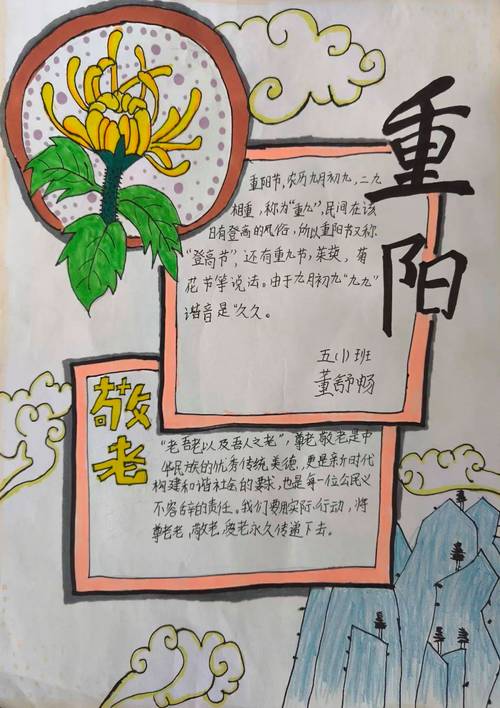 重阳
重阳节,农历九月初九,二九
相重,称为"重九",民间在该
日有登高的风俗,所以重阳节又称
"登高节",还有重九节,茱萸,菊
花节等说法。由于九月初九"九九"
谐音是"久久。
五(1)班
董舒畅
敬老
"老吾老以及吾人之老",尊老敬老是中
华民族的优秀传统美德,更是新时代
构建和谐社会的要求,也是每一位公民义
不容辞的责任。我们要用实际行动,将
尊老老,敬老,爱老永久传递下去。